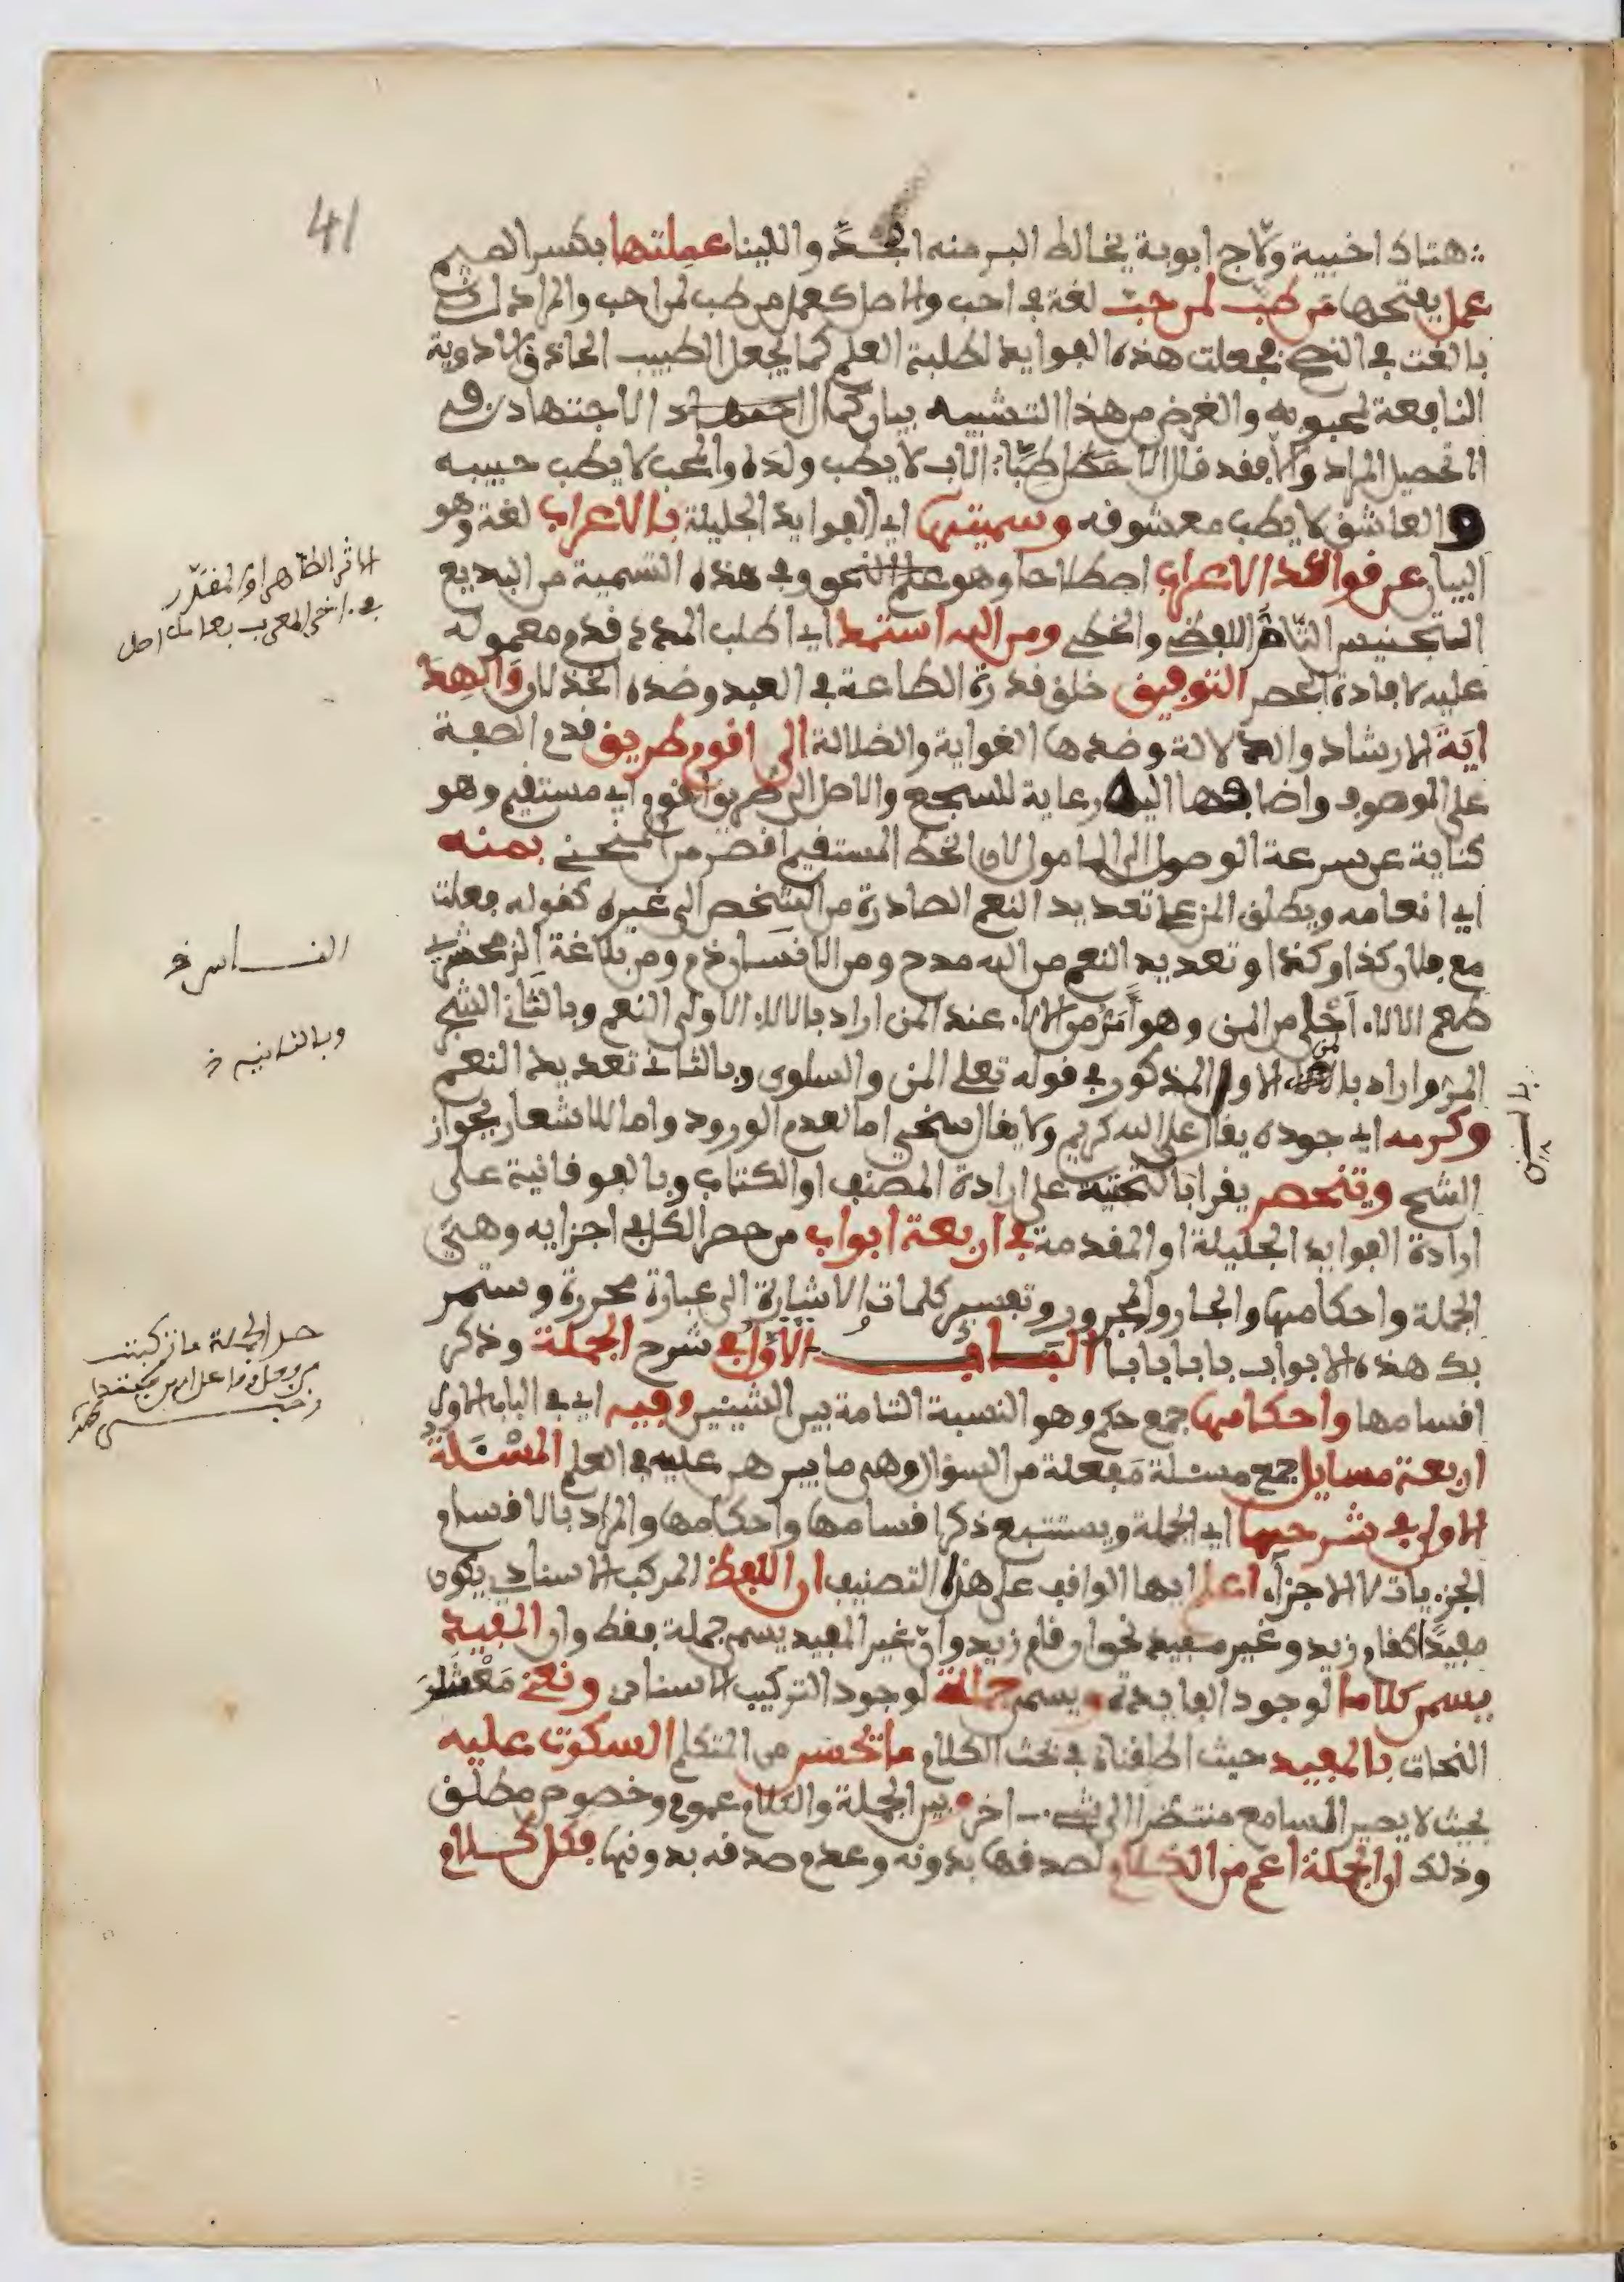 41
هتاك اخبية ولاج ابوبة يخالط البر منه الجد واللينا عملتها بكسر الميم
عمل بفتحها من طب لمن حب لغة في احب والاصل كعمل من طب لمن احب والمراد
بالغت في النصح فجعلت هذه الفوايد لطلبة العلم كما يجعل الطبيب الحاذق الادوية
النافعة لمحبوبه والغرض من هذا التشبيه بيان كمال الاجتهاد في
تحصيل المراد والا فقد قال الاب لا يطب ولده والمحب لا يطب حبيبه
والعاشق لا يطب معشوقه وسميتها اي الفوايد الجليلة بالاعراب لغة وهو
البيان عن قوائد الاعراب اصطلاحا وهو علم النحو وفي هذه التسمية من البديع
التجنيس التام اللفظي والخطي ومن الله استمد اي اطلب المدد قدم معموله
عليه لافادة الحصر التوفيق خلق قدرة الطاعة في العبد وضده الخذلان والهد
اية الارشاد والدلالة وضدها الغواية والضلالة الى اقوم طريق قدم الصفة
على الموصوف واضافها اليه رعاية للسجع والاصل الى طريق اقوم اي مستقيم وهو
كناية عن سرعة الوصول الى المامول لان الخط المستقيم اقصر من المنحني بمنه
اي انعامه ويطلق المن على تعديد النعم الصادرة من الشخص الى غيره كقوله فعلت
مع فلان كذا وكذا وتعديد النعم من الله مدح ومن الانسان ذم ومن بلاغة الزمخشري
طعم الالاء احلى من المن وهو امر من الالاء عند المن اراد بالالاء الاولى النعم وبالثاني الشجر
المر واراد بالمن الاول المذكور في قوله تعلى المن والسلوى وبالثاني تعديد النعم
وكرمه اي جوده يقال على الله كريم ولا يقال سخي اما لعدم الورود واما للاشعار بجواز
الشح وتنحصر يقرا بالتحتية على ارادة المصنف او الكتاب وبالفوفانية على
ارادة الفوايد الجليلة او المقدمة في اربعة ابواب من حصر الكل في اجزايه وهي
الجملة واحكامها والجار والمجرور وتفسير كلمات والاشارة الى عبارة محررة وستمر
بك هذه الابواب بابا بابا الباب الاول في شرح الجملة وذكر
اقسامها واحكامها جمع حكم وهو النسبة التامة بين الشيئين وفيه اي في الباب الاول
اربعة مسايل جمع مسئلة مفعلة من السؤال وهي ما يبرهن عليه في العلم المسئلة
الاولى في شرحها اي الجملة ويستتبع ذكر اقسامها واحكامها والمراد بالاقسام
الجزيات لا الاجزاء اعلم ايها الواقف على هذا التصنيف ان اللفظ المركب الاسنادي يكون
مفيدا كقام زيد وغير مفيد نحو ان قام زيد وان غير المفيد يسمى جملة فقط وان المفيد
يسمى كلاما لوجود الفايدة ويسمى جملة لوجود التركيب الاسنادي ونعني معشر
النحات بالمفيد حيث اطلقناه في بحث الكلام ما يحسن من المتكلم السكوت عليه
بحيث لا يصير السامع منتظرا الى شيء اخر وبين الجملة والكلام عموم وخصوص مطلق
وذلك ان الجملة اعم من الكلام لصدقها بدونه وعدم صدقه بدونها فكل كلام
الاثر الظاهر او المقدر
في اخر المعرب بعامل اصل
الفـــاسر خ
وبالثانيه خ
حد الجملة ما تركبت
من فعل وفاعل او من مبتدا
وخبر